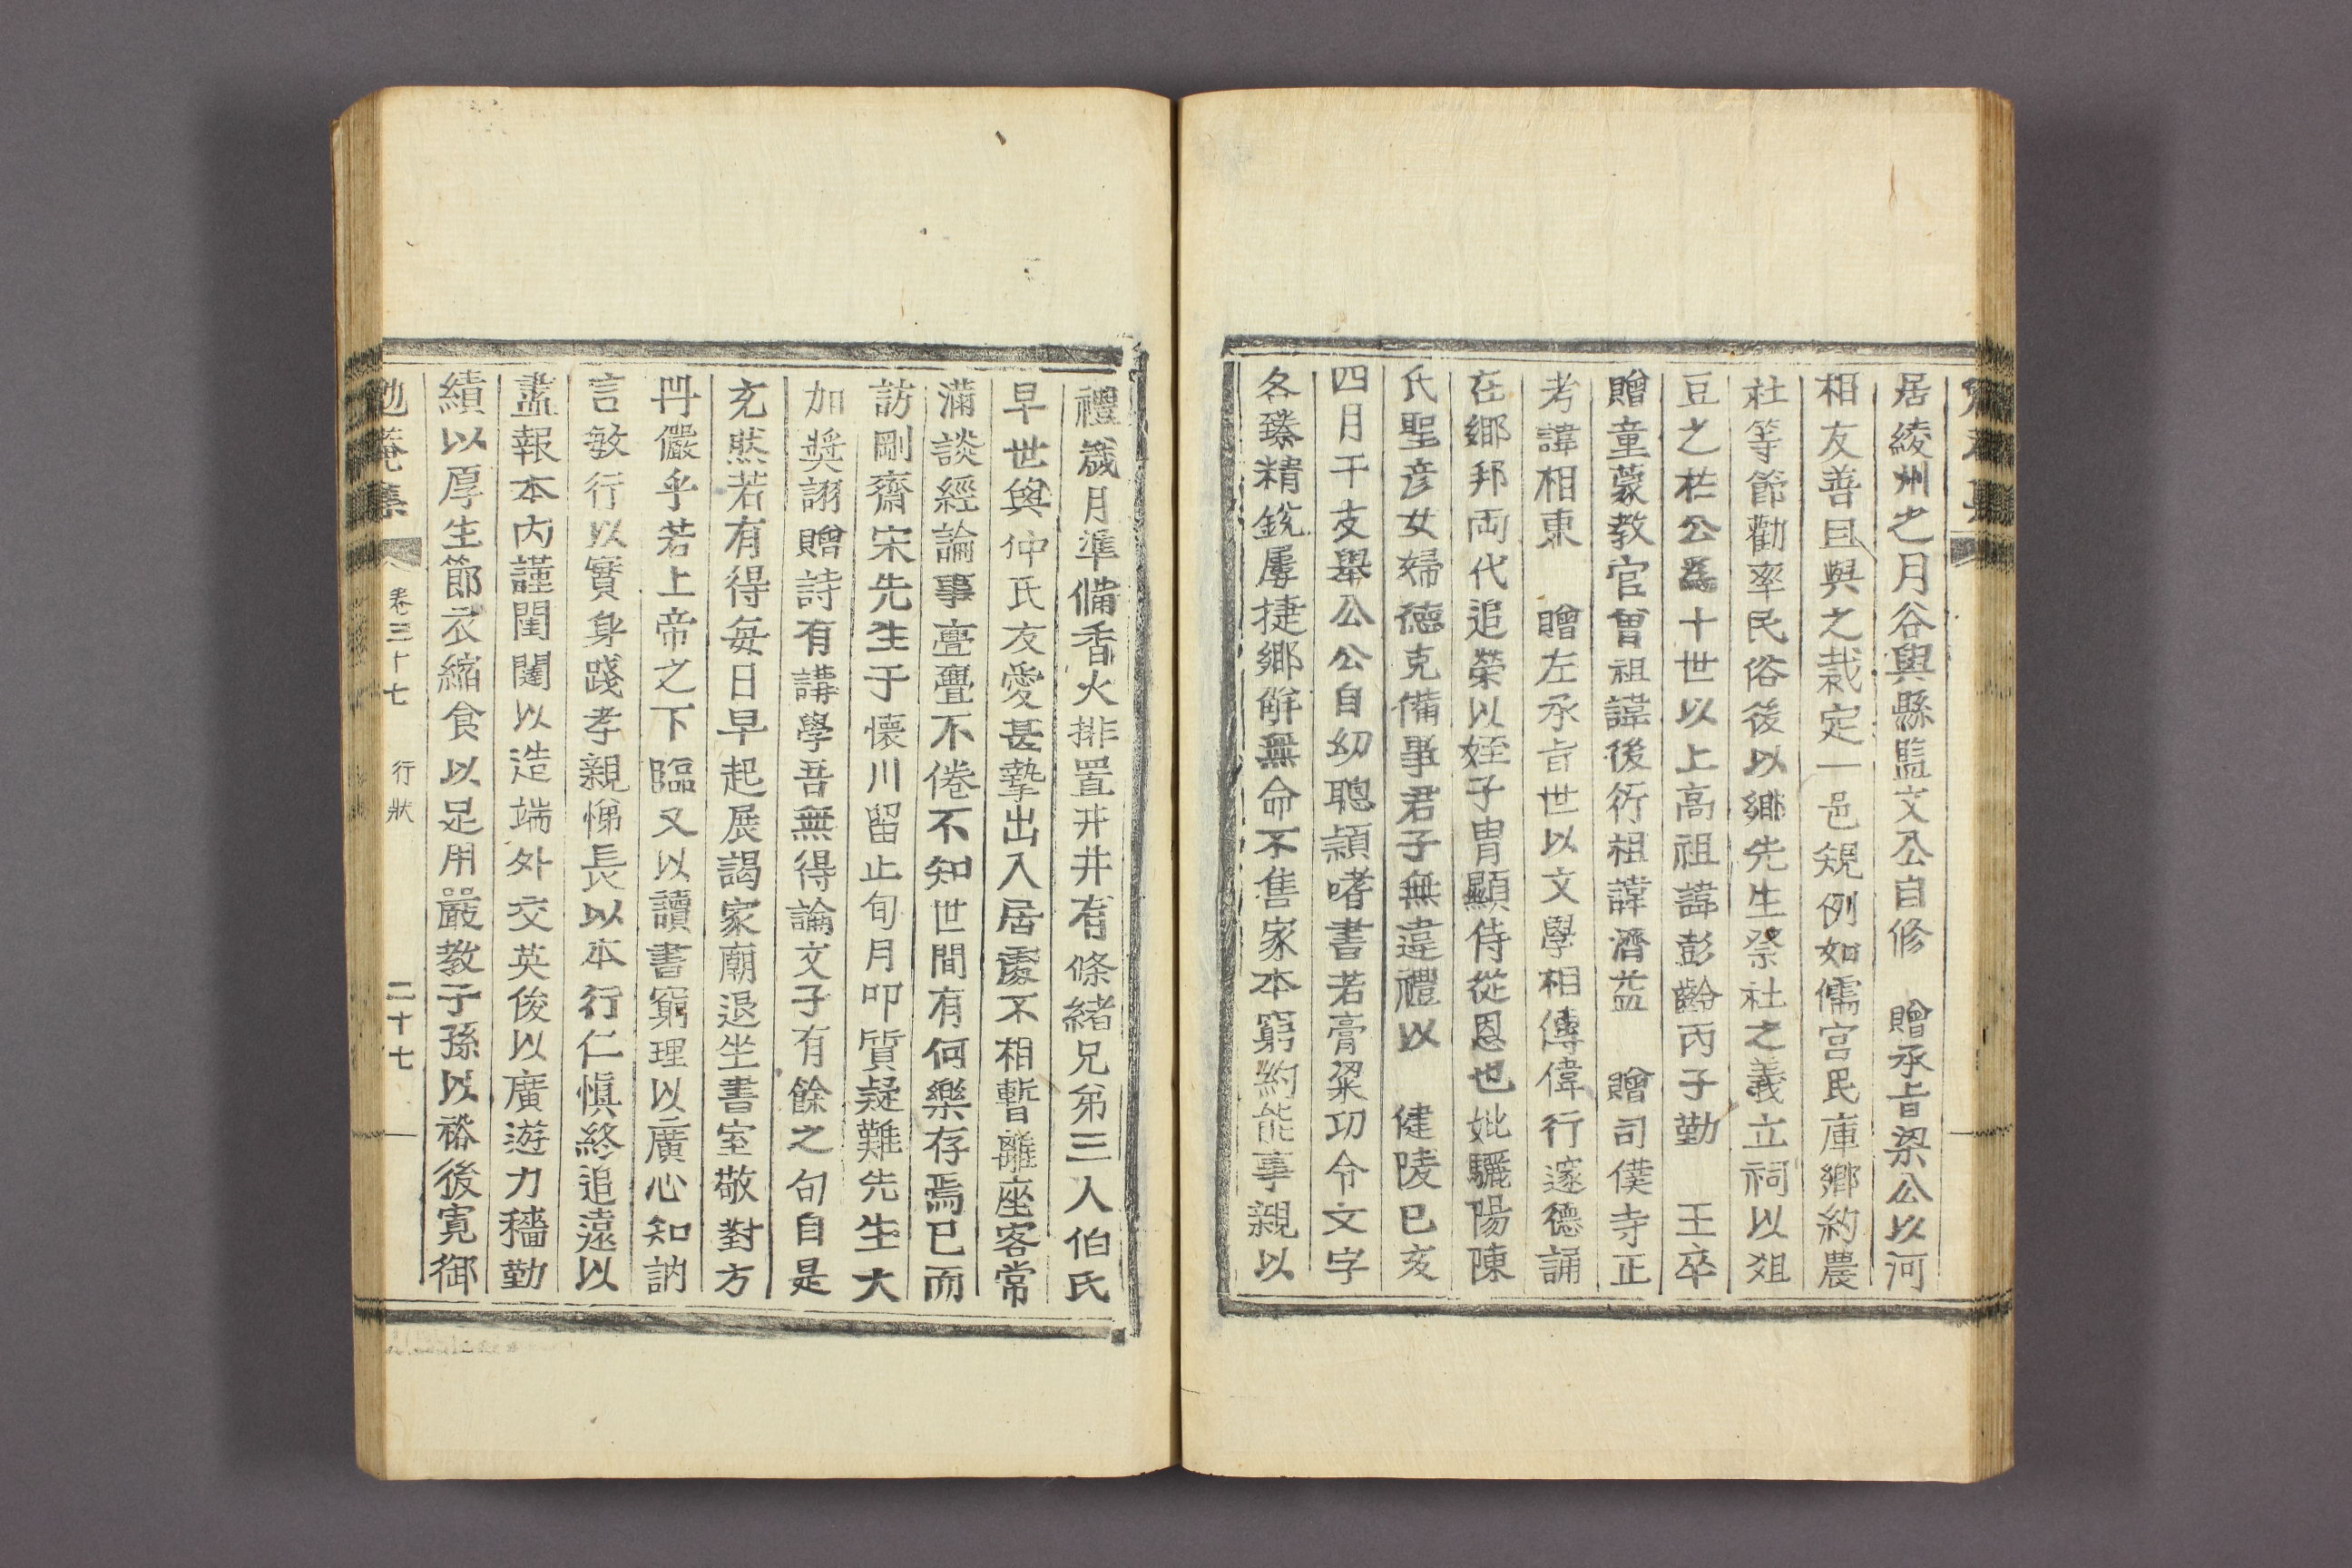 居綾州之月谷與縣監文公自修 贈承旨梁公以河
相友善且與之裁定一邑䂓例如儒宮民庫鄕約農
社等節勸率民俗後以鄕先生祭社之義立祠以俎
豆之於公爲十世以上高祖諱彭齡丙子勤 王卒
贈童蒙教官曾祖諱後衍祖諱濟益 贈司僕寺正
考諱相東 贈左承旨世以文學相傳偉行邃德誦
在鄕邦兩代追榮以姪子胄顯侍從恩也妣驪陽陳
氏聖彦女婦德克備事君子無違禮以 健陵己亥
四月干支擧公公自幼聰穎嗜書若膏粱功令文字
各臻精銳屢捷鄕解無命不售家本窮約能事親以
禮歲月準備香火排置井井有條緖兄弟三人伯氏
早世與仲氏友愛甚摯出入居處不相暫離座客常
滿談經論事亹亹不倦不知世間有何樂存焉已而
訪剛齋宋先生于懷川留止旬月叩質疑難先生大
加奬詡贈詩有講學吾無得論文子有餘之句自是
充然若有得每日早起展謁家廟退坐書室敬對方
冊儼乎若上帝之下臨又以讀書窮理以廣心知訥
言敏行以實身踐孝親悌長以本行仁愼終追遠以
盡報本內謹閨闥以造端外交英俊以廣遊力穡勤
績以厚生節衣縮食以足用嚴教子孫以裕後寬御
勉菴集 卷三十七 行狀 二十七